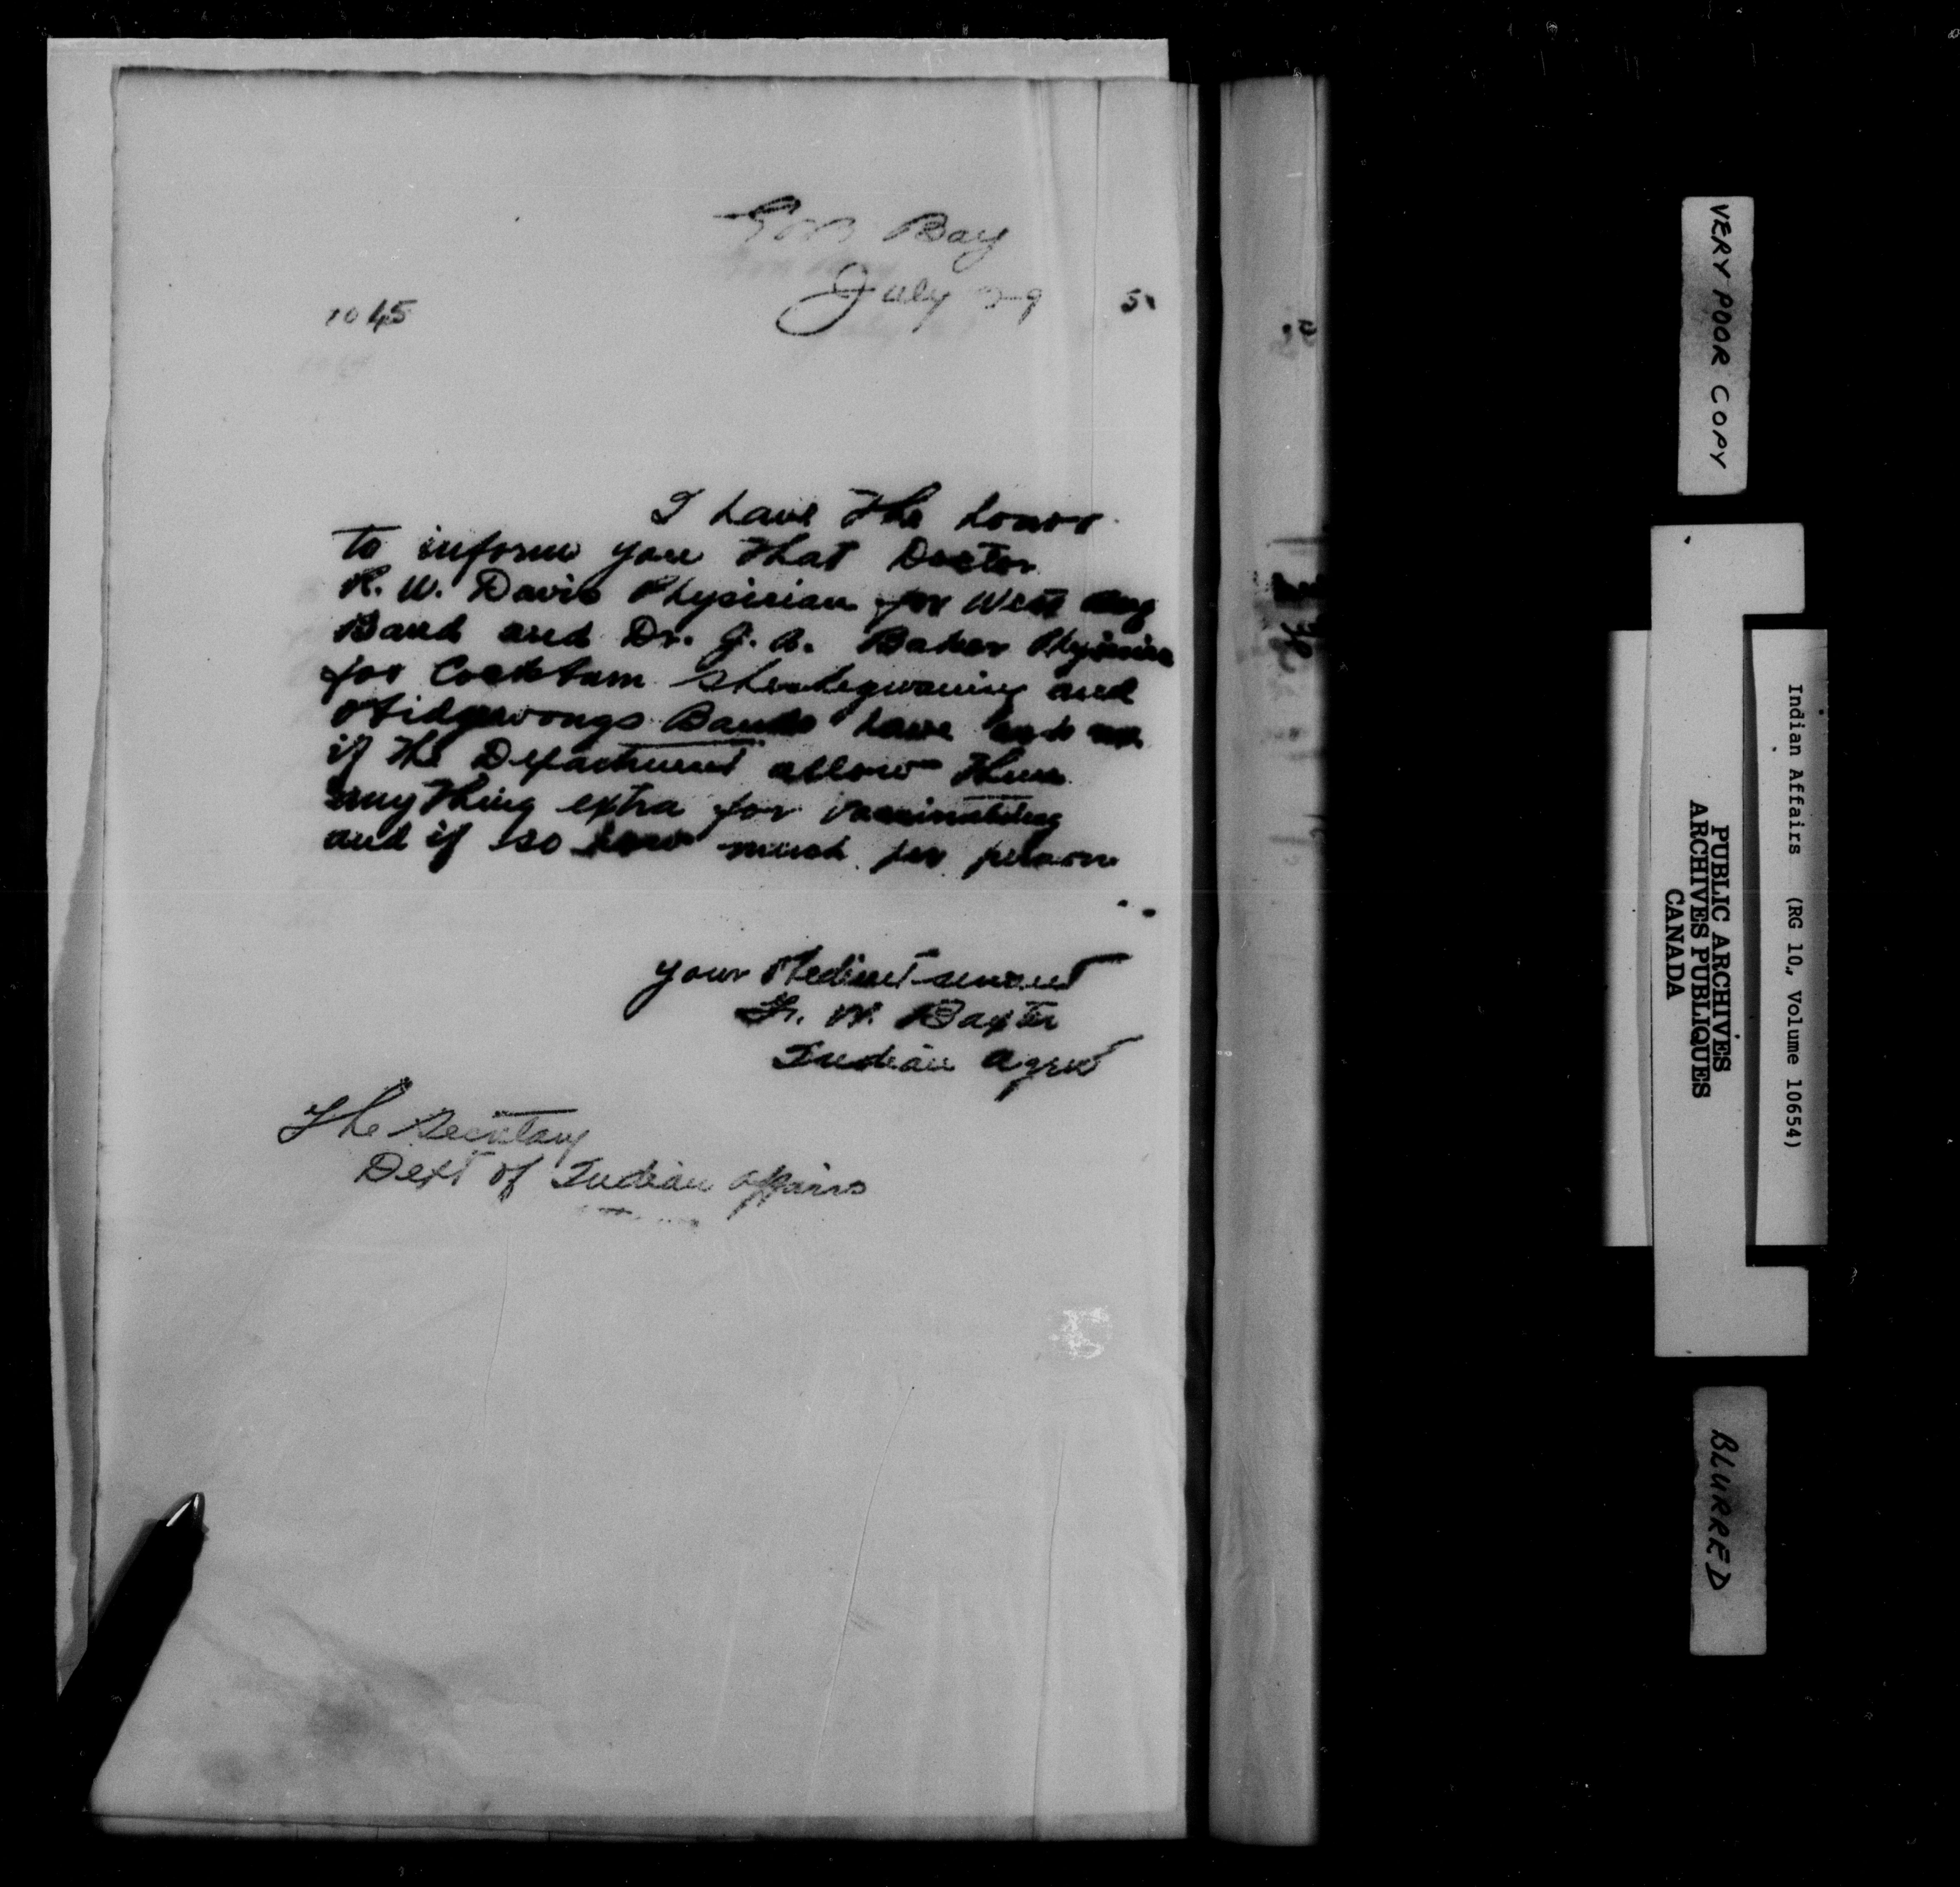 Gore Bay
July 29 5
1045
I have the honor
to inform you that Doctor
R. W. Davis Physician for West Bay
Band and Dr. J. A. Baker Physician
for Cockburn Sheshegwaning and
Obidgewongs Bands have ask me
if the Department allow them
anything extra for vaccinating
and if so how much per person
your Obedient servant
W. Baxter
Indian Agent
The Secretary
Dept of Indian Affairs
VERY POOR COPY
Indian Affairs (RG 10, Volume 10654)
PUBLIC ARCHIVES
ARCHIVES PUBLIQUES
CANADA
BLURRED